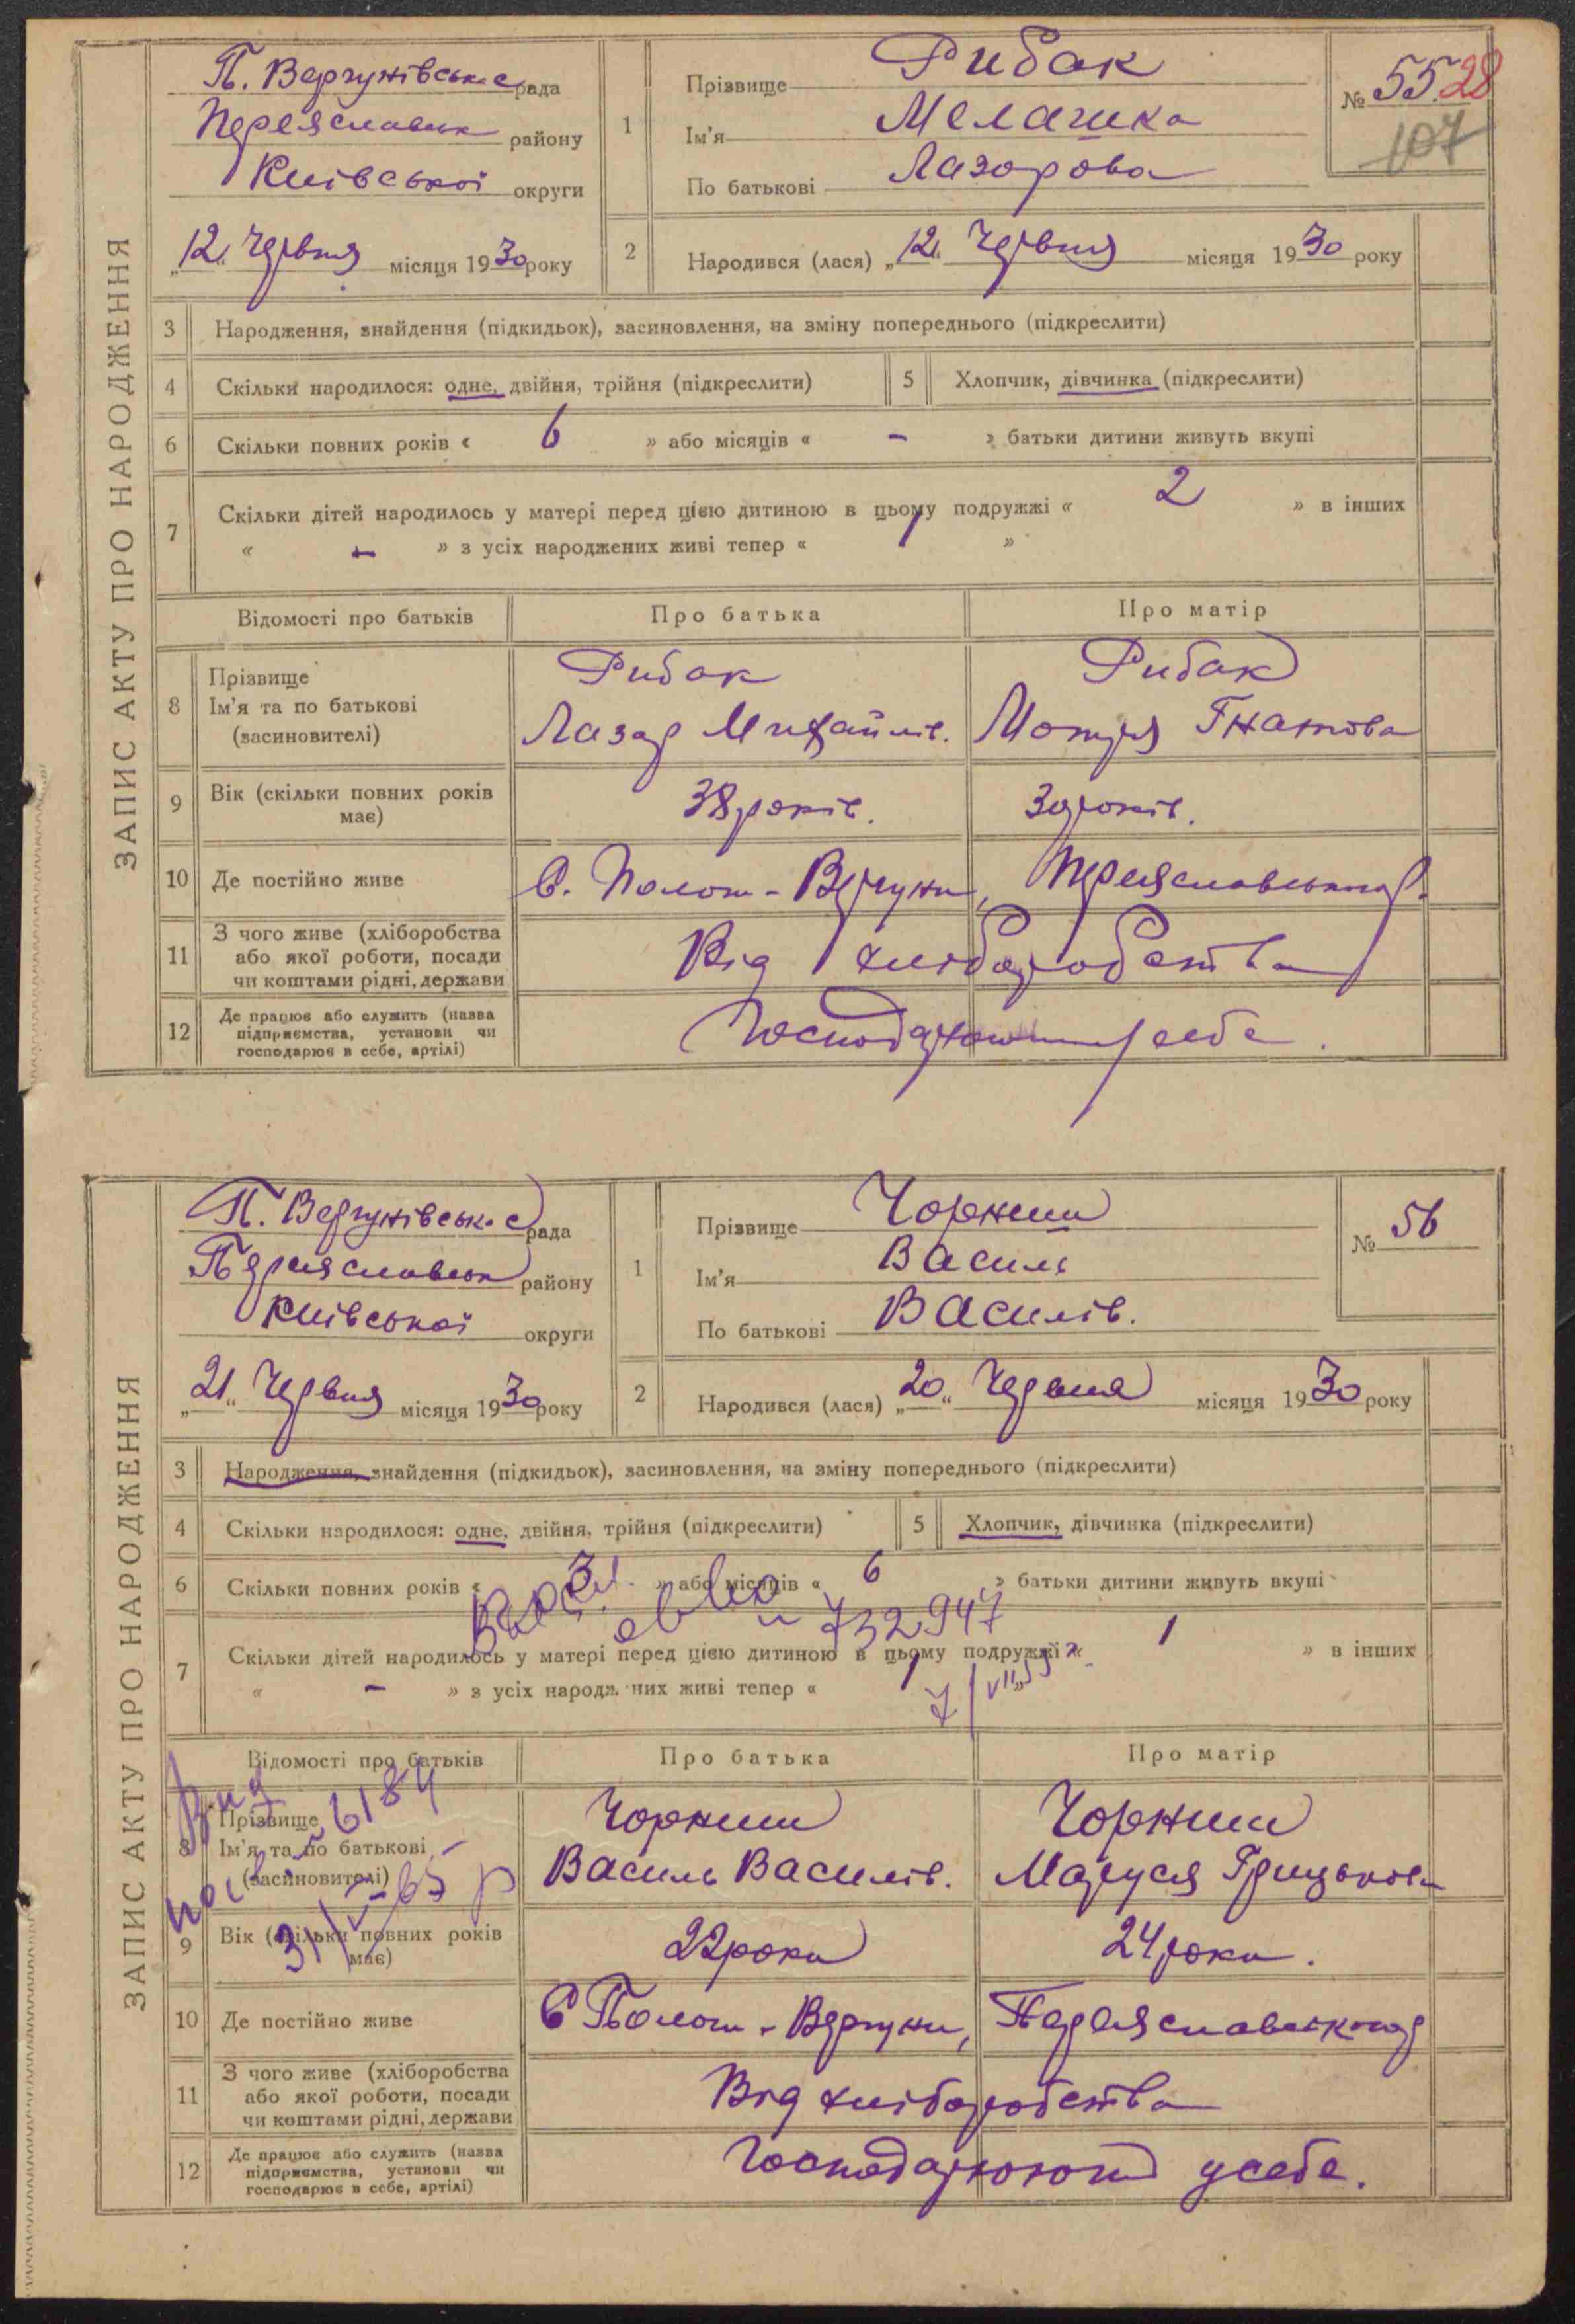 ЗАПИС АКТУ ПРО НАРОДЖЕННЯ
П. Вергунівська рада
Переяславськ району
Київської округи
„12“ Червня місяця 1930 року
1
Прізвище Рибак
Ім'я Меланика
По батькові Лазорова
№ 55. 28
107
2
Народився (лася) „12“ Червня місяця 1930 року
3 Народження, знайдення (підкидьок), засиновлення, на зміну попереднього (підкреслити)
4 Скільки народилося: одне, двійня, трійня (підкреслити)
5 Хлопчик, дівчинка (підкреслити)
6 Скільки повних років « 6 » або місяців « - » батьки дитини живуть вкупі
7 Скільки дітей народилось у матері перед цією дитиною в цьому подружжі « 2 » в інших
« - » з усіх народжених живі тепер « 1 »
Відомості про батьків
Про батька
Про матір
8 Прізвище
Ім'я та по батькові
(засиновителі)
Рибак
Лазар Михайлів.
Рибак
Мотря Гнатова
9 Вік (скільки повних років
має)
38 років.
30 років.
10 Де постійно живе
С. Полог-Вергуни, Переяславськ. р.
11 З чого живе (хліборобства
або якої роботи, посади
чи коштами рідні, держави
Від хліборобства
12 Де працює або служить (назва
підприємства, установи чи
господарює в себе, артілі)
Господарюють у себе.
ЗАПИС АКТУ ПРО НАРОДЖЕННЯ
П. Вергунівськ. с рада
Переяславськ району
Київської округи
„21“ Червня місяця 1930 року
1
Прізвище Чорний
Ім'я Василь
По батькові Василів.
№ 56
2
Народився (лася) „20“ Червня місяця 1930 року
3 Народження, знайдення (підкидьок), засиновлення, на зміну попереднього (підкреслити)
4 Скільки народилося: одне, двійня, трійня (підкреслити)
5 Хлопчик, дівчинка (підкреслити)
6 Скільки повних років « 3 » або місяців « 6 » батьки дитини живуть вкупі
732947
7 Скільки дітей народилось у матері перед цією дитиною в цьому подружжі « 1 » в інших
« - » з усіх народжених живі тепер « 1 »
7/VII
Відомості про батьків
Про батька
Про матір
6184
8 Прізвище
Ім'я та по батькові
(засиновителі)
Чорний
Василь Василів.
Чорний
Маруся Грицькова
31/V-65 р
9 Вік (скільки повних років
має)
22 роки
24 роки.
10 Де постійно живе
С Полог-Вергуни, Переяславськ. р
11 З чого живе (хліборобства
або якої роботи, посади
чи коштами рідні, держави
Від хліборобства
12 Де працює або служить (назва
підприємства, установи чи
господарює в себе, артілі)
Господарюють у себе.